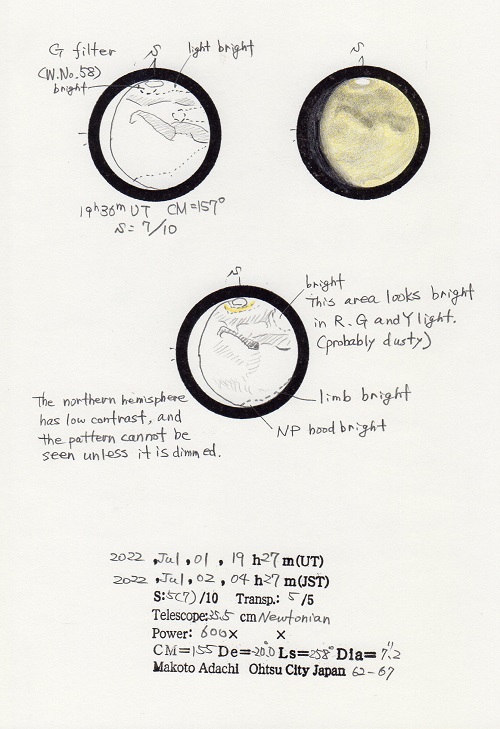 G filter
(W.No.58)
S
light bright
bright
S
19h36m UT CM=157°
S=7/10
S
bright
This area looks bright
in R.G and Y light.
(probably dusty)
limb bright
NP hood bright
The northern hemisphere
has low contrast, and
the pattern cannot be
seen unless it is dimmed.
2022 ,Jul,01 , 19 h27 m(UT)
2022 ,Jul,02 , 04 h27 m(JST)
S:5(7)/10 Transp.: 5/5
Telescope:35.5 cm Newtonian
Power: 600× ×
CM=155 De=-20.0 Ls=258° Dia= 7.2"
Makoto Adachi Ohtsu City Japan 62-67